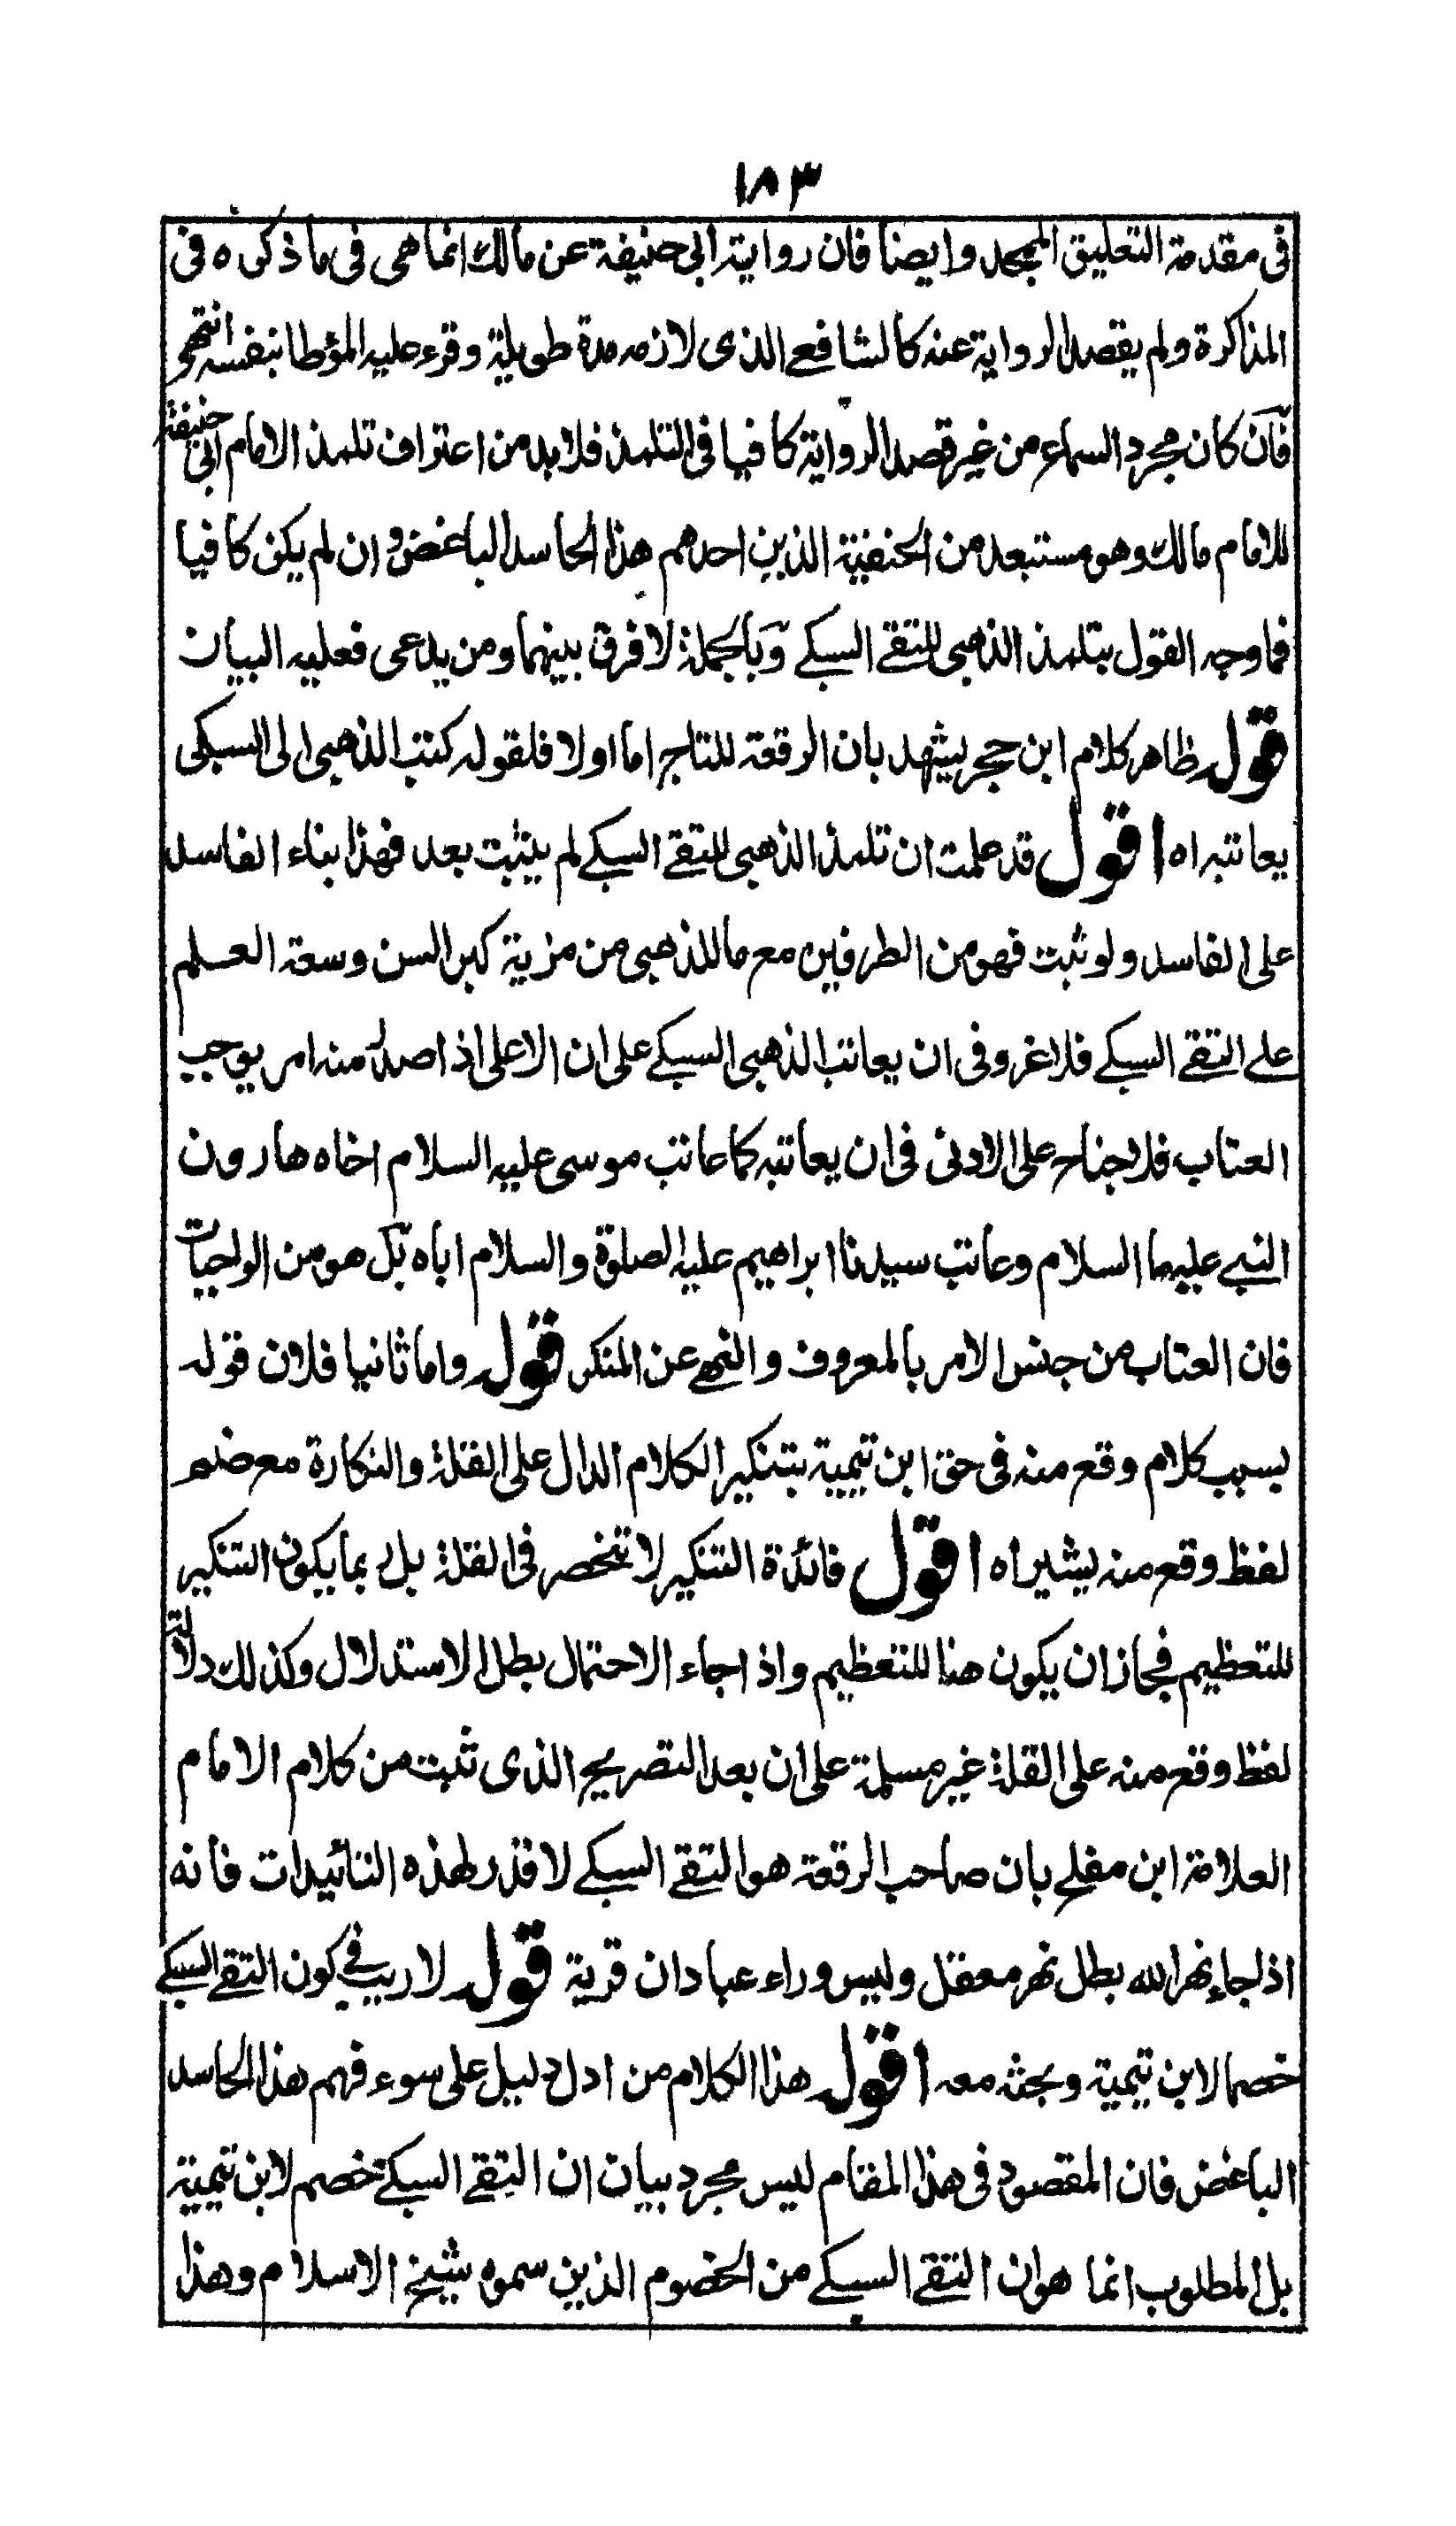 ١٨٣
فى مقدمة التعليق الممجد وايضا فان رواية ابى حنيفة عن مالك انما هى فى ما ذكره فى
المذاكرة ولم يقصد الرواية عنه كالشافعے الذى لازمه مدة طويلة وقرء عليه المؤطا بنفسه انتهى
فان كان مجرد السماع من غير قصد الرواية كافيا فى التلمذ فلا بد من اعتراف تلمذ الامام ابى حنيفة
للامام مالك وهو مستبعد من الحنفية الذين احدهم هذا الحاسد الباغض وان لم يكن كافيا
فما وجه القول بتلمذ الذهبى للتقے السبكے وبالجملة لا فرق بينهما ومن يدعى فعليه البيان
قوله ظاهر كلام ابن حجر يشهد بان الرقعة للتاج اما اولا فلقوله كتب الذهبى الى السبكى
يعاتبه اه اقول قد علمت ان تلمذ الذهبى للتقے السبكے لم يثبت بعد فهذا بناء الفاسد
على الفاسد ولو ثبت فهو من الطرفين مع ما للذهبى من مزية كبر السن وسعة العلم
علے التقے السبكے فلا غرو فى ان يعاتب الذهبى السبكے على ان الاعلى اذا صدر منه امر يوجب
العتاب فلا جناح على الادنى فى ان يعاتبه كما عاتب موسى عليه السلام اخاه هارون
النبے عليهما السلام وعاتب سيدنا ابراهيم عليه الصلوة والسلام اباه بل هو من الواجبات
فان العتاب من جنس الامر بالمعروف والنهے عن المنكر قوله واما ثانيا فلان قوله
بسبب كلام وقع منه فى حق ابن تيمية بتنكير الكلام الدال على القلة والنكارة مع ضم
لفظ وقع منه يشير اه اقول فائدة التنكير لا تنحصر فى القلة بل ربما يكون التنكير
للتعظيم فجاز ان يكون هنا للتعظيم واذا جاء الاحتمال بطل الاستدلال وكذلك دلالة
لفظ وقع منه على القلة غير مسلمة على ان بعد التصريح الذى ثبت من كلام الامام
العلامة ابن مفلح بان صاحب الرقعة هو التقے السبكے لا قدر لهذه التائيدات فانه
اذا جاء نهر الله بطل نهر معقل وليس وراء عبادان قرية قوله لا ريب فے كون التقے السبكے
خصما لابن تيمية وبحثه معه اقول هذا الكلام من ادل دليل على سوء فهم هذا الحاسد
الباغض فان المقصود فى هذا المقام ليس مجرد بيان ان التقے السبكے خصم لابن تيمية
بل المطلوب انما هو ان التقے السبكے من الخصوم الذين سموه شيخ الاسلام وهذا